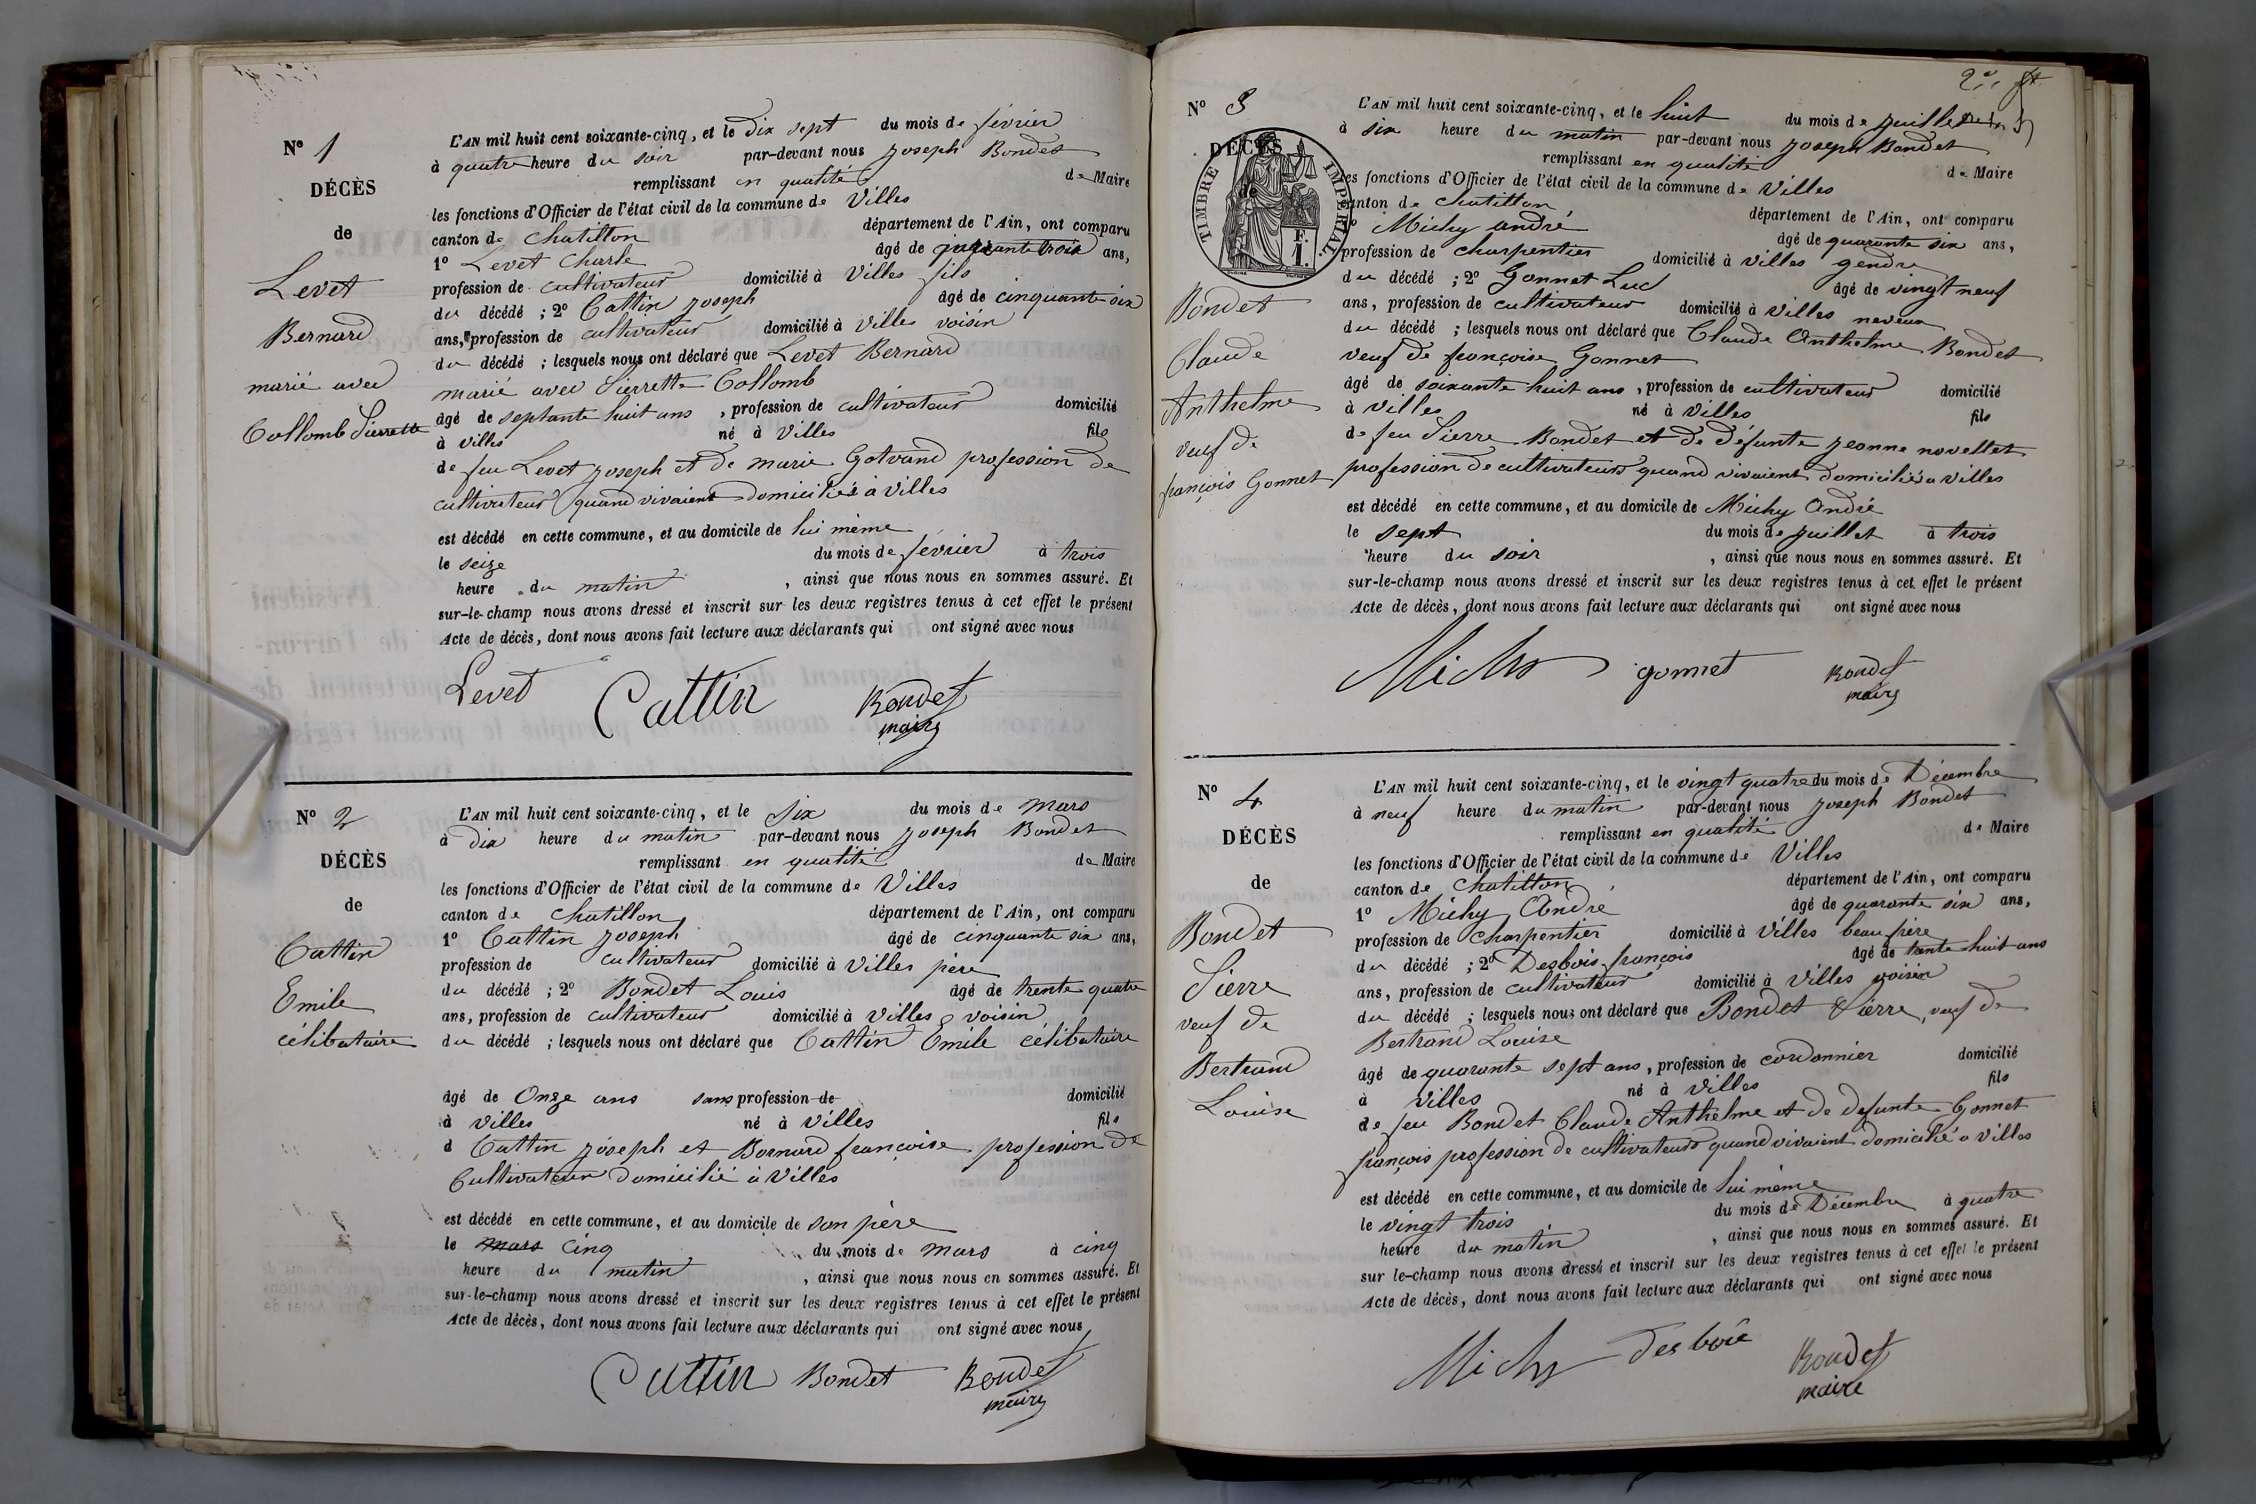 N° 1
DÉCÈS
de
Levet
Bernard
marié avec
Collomb Pierrette
L'AN mil huit cent soixante-cinq, et le dix sept du mois de février
à quatre heure du soir par-devant nous joseph Bondet
remplissant en qualité de Maire
les fonctions d'Officier de l'état civil de la commune de Villes
canton de Chatillon département de l'Ain, ont comparu
1° Levet Charle âgé de ans,
profession de cultivateur domicilié à Villes fils
du décédé ; 2° Cattin joseph âgé de cinquante six
ans, profession de cultivateur domicilié à Villes voisin
du décédé ; lesquels nous ont déclaré que Levet Bernard
marié avec Pierrette Collomb
âgé de septante huit ans, profession de cultivateur domicilié
à villes né à Villes fils
de feu Levet joseph et de marie profession de
cultivateur quand vivaient domiciliés à Villes
est décédé en cette commune, et au domicile de lui même
le seize du mois de février à trois
heure du matin, ainsi que nous nous en sommes assuré. Et
sur-le-champ nous avons dressé et inscrit sur les deux registres tenus à cet effet le présent
Acte de décès, dont nous avons fait lecture aux déclarants qui ont signé avec nous
Levet Cattin Bondet
maire
N° 2
DÉCÈS
de
Cattin
Emile
célibataire
L'AN mil huit cent soixante-cinq, et le Six du mois de Mars
à dix heure du matin par-devant nous joseph Bondet
remplissant en qualité de Maire
les fonctions d'Officier de l'état civil de la commune de Villes
canton de Chatillon département de l'Ain, ont comparu
1° Cattin joseph âgé de cinquante six ans,
profession de cultivateur domicilié à Villes père
du décédé ; 2° Bondet Louis âgé de trente quatre
ans, profession de cultivateur domicilié à Villes voisin
du décédé ; lesquels nous ont déclaré que Cattin Emile célibataire
âgé de Onze ans sans profession de domicilié
à villes né à Villes fils
d Cattin joseph et Bornard françoise profession de
Cultivateur domicilié à Villes
est décédé en cette commune, et au domicile de son père
le mars cinq du mois de mars à cinq
heure du matin, ainsi que nous nous en sommes assuré. Et
sur-le-champ nous avons dressé et inscrit sur les deux registres tenus à cet effet le présent
Acte de décès, dont nous avons fait lecture aux déclarants qui ont signé avec nous
Cattin Bondet Bondet
maire
N° 3
DÉCÈS
de
TIMBRE IMPÉRIAL
1 F.
Bondet
Claude
Anthelme
veuf de
françois Gonnet
L'AN mil huit cent soixante-cinq, et le huit du mois de juillet
à six heure du matin par-devant nous joseph Bondet
remplissant en qualité de Maire
les fonctions d'Officier de l'état civil de la commune de Villes
canton de Chatillon département de l'Ain, ont comparu
1° Michy andré âgé de quarante six ans,
profession de charpentier domicilié à villes gendre
du décédé ; 2° Gonnet Luc âgé de vingt neuf
ans, profession de cultivateur domicilié à Villes neveux
du décédé ; lesquels nous ont déclaré que Claude Anthelme Bondet
veuf de françoise Gonnet
âgé de soixante huit ans, profession de cultivateur domicilié
à Villes né à Villes fils
de feu Pierre Bondet et de défunte jeanne novellet
profession de cultivateurs quand vivaient domiciliés a Villes
est décédé en cette commune, et au domicile de Michy andré
le sept du mois de juillet à trois
heure du soir, ainsi que nous nous en sommes assuré. Et
sur-le-champ nous avons dressé et inscrit sur les deux registres tenus à cet effet le présent
Acte de décès, dont nous avons fait lecture aux déclarants qui ont signé avec nous
Michy gonnet Bondet
maire
N° 4
DÉCÈS
de
Bondet
Pierre
veuf de
Bertrand
Louise
L'AN mil huit cent soixante-cinq, et le vingt quatre du mois de Décembre
à neuf heure du matin par-devant nous joseph Bondet
remplissant en qualité de Maire
les fonctions d'Officier de l'état civil de la commune de Villes
canton de Chatillon département de l'Ain, ont comparu
1° Michy André âgé de quarante six ans,
profession de charpentier domicilié à Villes beau frère
du décédé ; 2° Desbois françois âgé de tante huit ans
ans, profession de cultivateur domicilié à Villes voisin
du décédé ; lesquels nous ont déclaré que Bondet Pierre, veuf de
Bertrand Louise
âgé de quarante sept ans, profession de cordonnier domicilié
à Villes né à Villes fils
de feu Bondet Claude Anthelme et de defunte Gonnet
françois profession de cultivateurs quand vivaient domicilié a Villes
est décédé en cette commune, et au domicile de lui même
le vingt trois du mois de Décembre à quatre
heure du matin, ainsi que nous nous en sommes assuré. Et
sur le-champ nous avons dressé et inscrit sur les deux registres tenus à cet effet le présent
Acte de décès, dont nous avons fait lecture aux déclarants qui ont signé avec nous
Michy desbois Bondet
maire